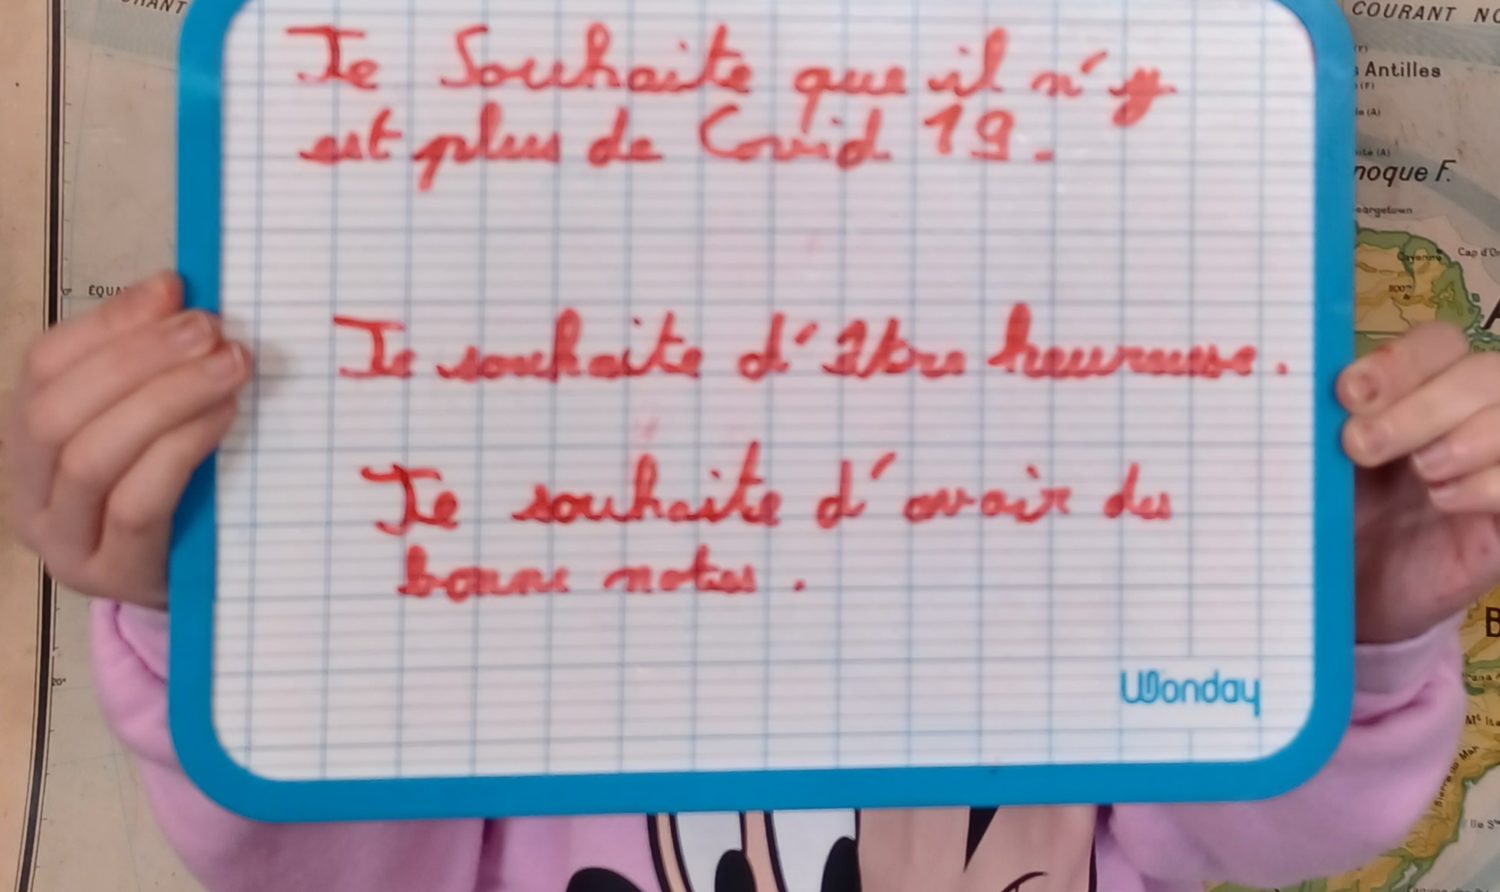 RANT
COURANT NO
Antilles
noque F.
eorgetown
Cayenne
Cap d'O
ÉQUA
20°
Je Souhaite que il n'y
est plus de Covid 19.
Je souhaite d'être heureuse.
Je souhaite d'avoir des
bonne notes.
Wonday
B